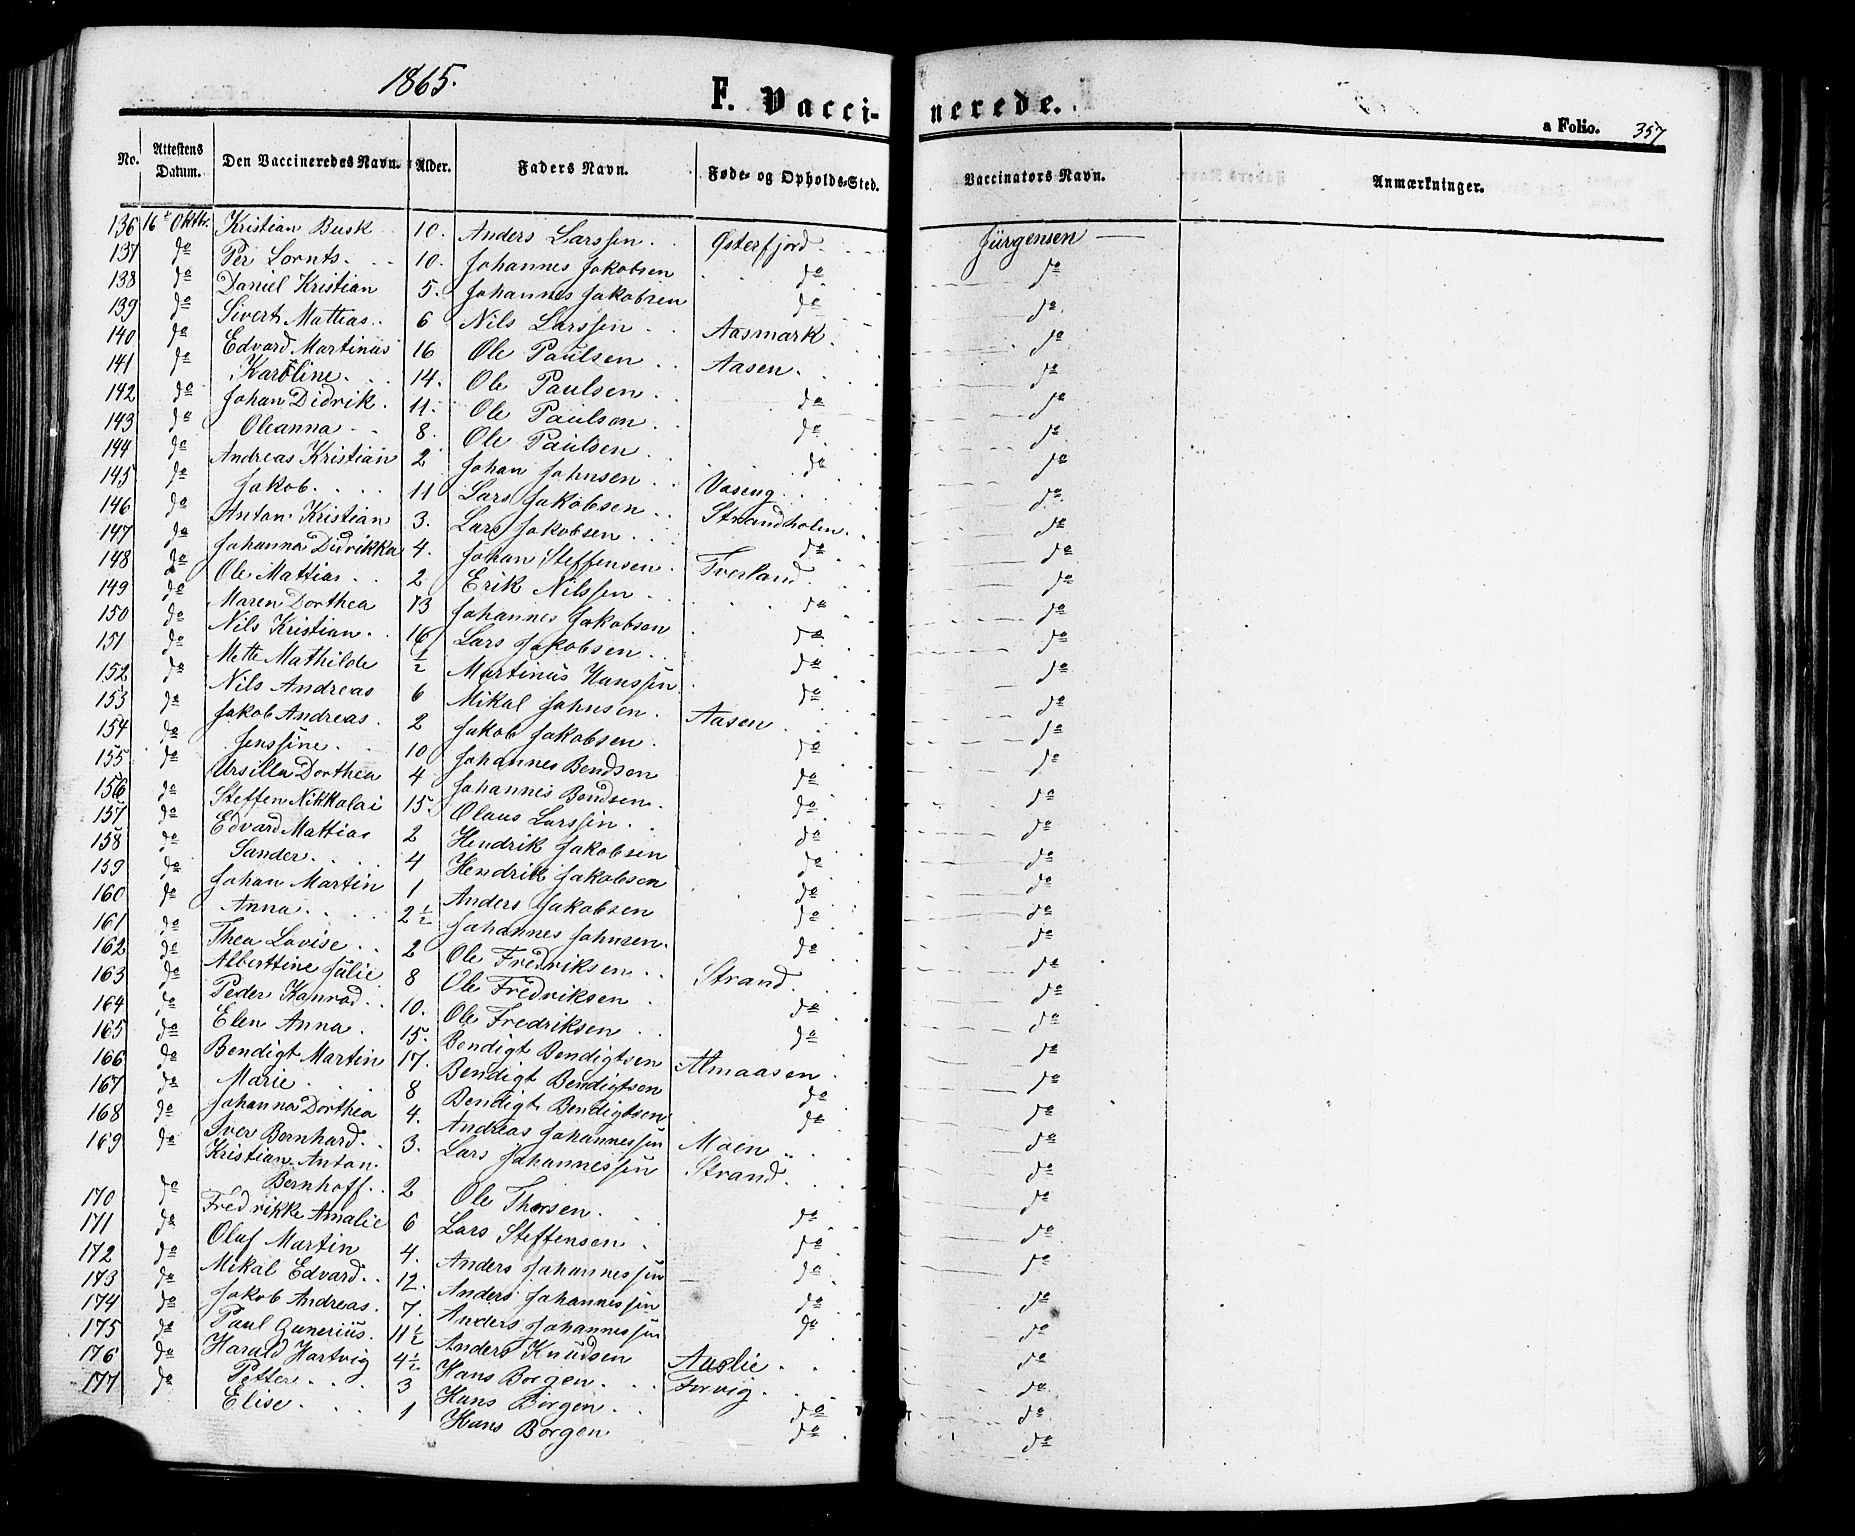 1865.
F. Vaccinerede.
a Folio. 357
No. Attestens Datum. Den Vaccineredes Navn. Alder. Faders Navn. Føde- og Opholds-Sted. Vaccinators Navn. Anmærkninger.
136 16de Oktbr. Kristian Busk 10. Anders Larssen Østerfjord Jürgensen
137 do Per Lornts 10. Johannes Jakobsen do do
138 do Daniel Kristian 5. Johannes Jakobsen do do
139 do Sivert Mattias 6 Nils Larssen Aasmark do
140 do Edvard Martinus 16 Ole Paulsen Aasen do
141 do Karoline 14. Ole Paulsen do do
142 do Johan Didrik 11. Ole Paulsen do do
143 do Oleanna 8. Ole Paulsen do do
144 do Andreas Kristian 2 Johan Johnsen Vaseng do
145 do Jakob 11 Lars Jakobsen Strandholm do
146 do Anton Kristian 3. Lars Jakobsen do do
147 do Johanna Didrikka 4. Johan Steffensen Tverland do
148 do Ole Mattias 2 Erik Nilssen do do
149 do Maren Dorthea 13 Johannes Jakobsen do do
150 do Nils Kristian 16 Lars Jakobsen do do
151 do Mette Mathilde ½ Martinus Hanssen do do
152 do Nils Andreas 6 Mikal Johnsen Aasen do
153 do Jakob Andreas 2 Jakob Jakobsen do do
154 do Jenssine 10 Johannes Bendsen do do
155 do Ursilla Dorthea 4 Johannes Bendsen do do
156 do Steffen Nikkolai 15. Olaus Larssen do do
157 do Edvard Mattias 2 Hendrik Jakobsen do do
158 do Sander 4 Hendrik Jakobsen do do
159 do Johan Martin 1 Anders Jakobsen do do
160 do Anna 2½ Johannes Johnsen do do
161 do Thea Lovise 2 Ole Fredriksen Strand do
162 do Alberttine Julie 8 Ole Fredriksen do do
163 do Peder Konrad 10. Ole Fredriksen do do
164 do Elen Anna 15. Bendigt Bendigtsen Almaasen do
165 do Bendigt Martin 17. Bendigt Bendigtsen do do
166 do Marie 8 Bendigt Bendigtsen do do
167 do Johanna Dorthea 4. Andreas Johannessen Moen do
168 do Iver Bernhard 3. Lars Johannessen Strand do
169 do Kristian Anton
Bernhoff 2 Ole Thorsen do do
170 do Fredrikke Amalie 6 Lars Steffensen do do
171 do Oluf Martin 4. Anders Johannessen do do
172 do Mikal Edvard 12. Anders Johannessen do do
173 do Jakob Andreas 7. Anders Johannessen do do
174 do Paul Gunerius 11½ Anders Knudsen Aaslie do
175 do Harald Hartvig 4½ Hans Borgen Forvig do
176 do Petter 3 Hans Borgen do do
177 do Elise 1 Hans Borgen do do